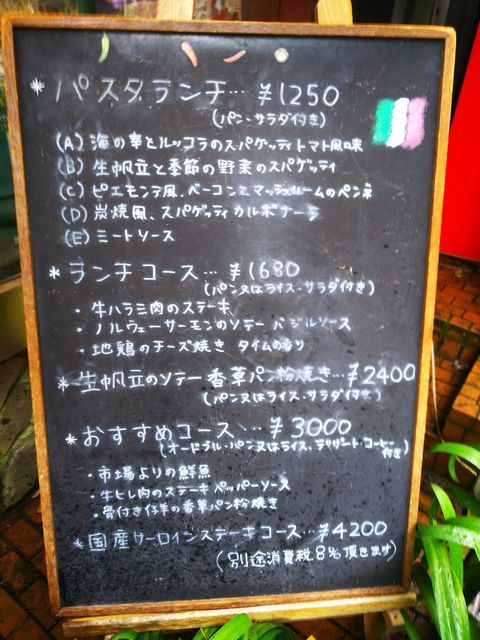 * パスタランチ… ¥1250
(パン・サラダ付き)
(A) 海の幸とルッコラのスパゲッティトマト風味
(B) 生帆立と季節の野菜のスパゲッティ
(C) ピエモンテ風、ベーコンとマッシュルームのペンネ
(D) 炭焼風、スパゲッティカルボナーラ
(E) ミートソース
* ランチコース… ¥1680
(パン又はライス・サラダ付き)
・牛ハラミ肉のステーキ
・ノルウェーサーモンのソテー バジルソース
・地鶏のチーズ焼き タイムの香り
* 生帆立のソテー 香草パン粉焼き…¥2400
(パン又はライス・サラダ付き)
* おすすめコース… ¥3000
(オードブル・パン又はライス、デザート・コーヒー付き)
・市場よりの鮮魚
・牛ヒレ肉のステーキペッパーソース
・骨付き仔羊の香草パン粉焼き
* 国産サーロインステーキコース…¥4200
(別途消費税8%頂きます)